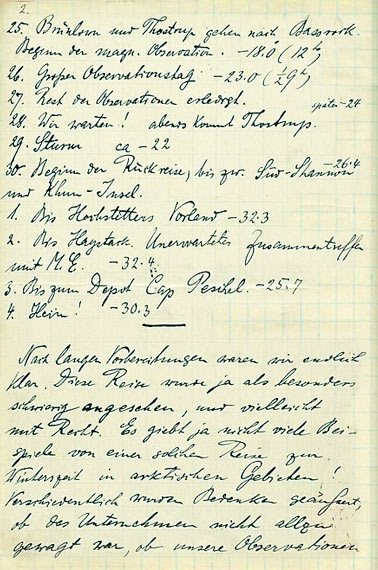 2.
25. Brünlow und Thostrup gehen nach Bassrock.
Beginn der magn. Observation. -18.0 (12h)
26. Großer Observationstag -23.0 (½9h)
27. Rest der Observationen erledigt.
später -24
28. Wir warten! abends kommt Thostrup.
29. Sturm ca -22
30. Beginn der Rückreise, bis zw. Süd-Shannon -26.4
und Khun-Insel.
1. Bis Hochstetters Vorland -32.3
2. Bis Haystack. Unerwartetes Zusammentreffen
mit M.E. -32.4
3. Bis zum Depot Cap Peschel. -25.7
4. Heim! -30.3
Nach langen Vorbereitungen waren wir endlich
klar. Diese Reise wurde ja als besonders
schwierig angesehen, und vielleicht
mit Recht. Es giebt ja nicht viele Bei-
spiele von einer solchen Reise zur
Winterszeit in arktischen Gebieten!
Verschiedentlich wurden Bedenken geäußert,
ob das Unternehmen nicht allzu
gewagt war, ob unsere Observationen